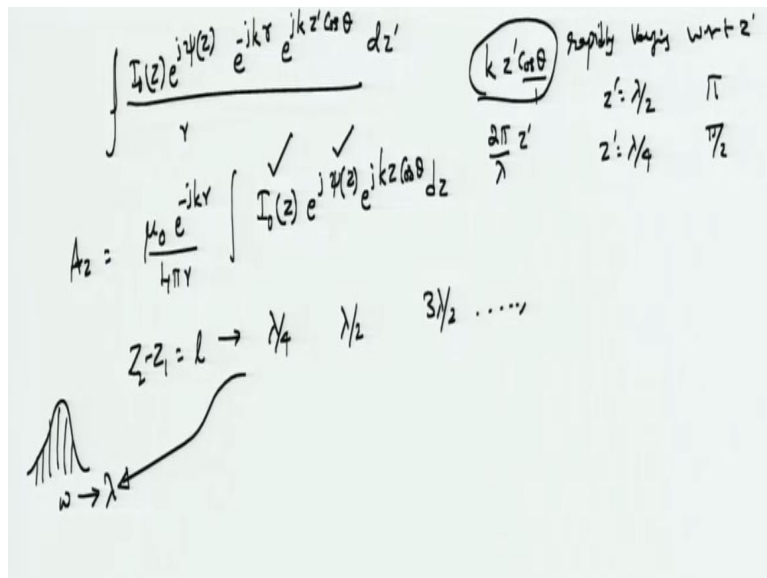 ∫ I₀(z) e^{jψ(z)} e^{-jkr} e^{jkz' cosθ} / r dz'
k z' cosθ rapidly varying w.r.t z'
z' = λ/2 π
2π/λ z' z' = λ/4 π/2
A_z = μ₀ e^{-jkr} / 4πr ∫ I₀(z) e^{jψ(z)} e^{jkz cosθ} dz
z₂-z₁ = l → λ/4 λ/2 3λ/2 .....,
ω → λ